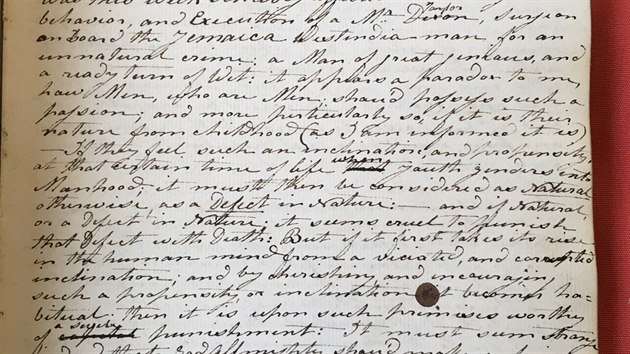 behavior, and Execution of a Mr. Taylor Dixon, Surgeon
on board the Jemaica Westindia man for an
unnatural crime; a Man of great genious, and
a ready turn of Wit: it appears a paradox to me,
how Men, who are Men, shou'd possess such a
passion; and more particularly so, if it is their
nature from childhood (as I am informed it is)
— If they feel such an inclination, and propensity,
at that certain time of life when youth genders into
Manhood; it must then be considered as Natural
otherwise, as a Defect in Nature: — and if Natural
or a Defect in Nature; it seems cruel to punish
that Defect with Death: But if it first takes its rise
in the human mind from a viciated, and corrupted
inclination; and by cherishing and encouraging
such a propensity, or inclination becomes ha-
bitual; then it is upon such premises worthy
of a severe punishment: It must seem strange
that God Almighty shou'd make